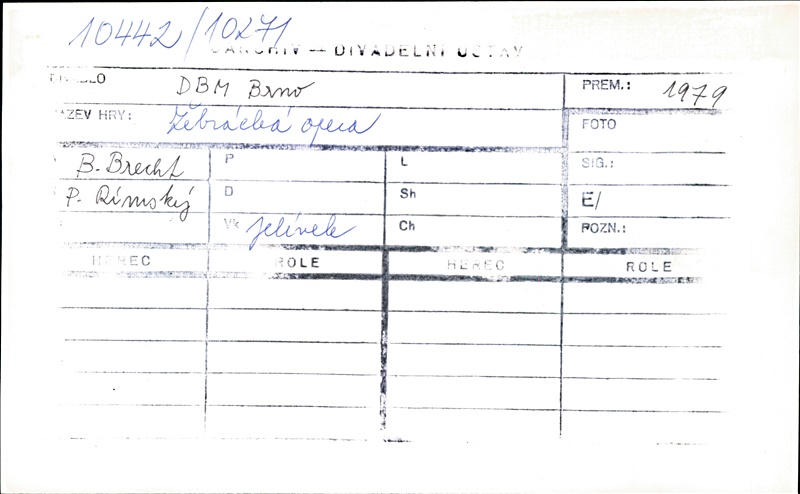 10442/10271
ARCHIV — DIVADELNÍ ÚSTAV
DIVADLO DBM Brno PREM.: 1979
ZEV HRY: Žebrácká opera FOTO
B. Brecht P L SIG.:
P. Rímský D Sh E/
Vk Jelínek Ch POZN.:
HEREC ROLE HEREC ROLE